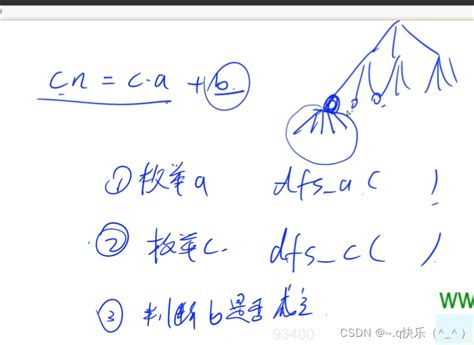 c·n = c·a + b
① 枚举a dfs_a( )
② 枚举c. dfs_c( )
③ 判断b是否成立
www
93400
CSDN @~.q快乐(^_^)